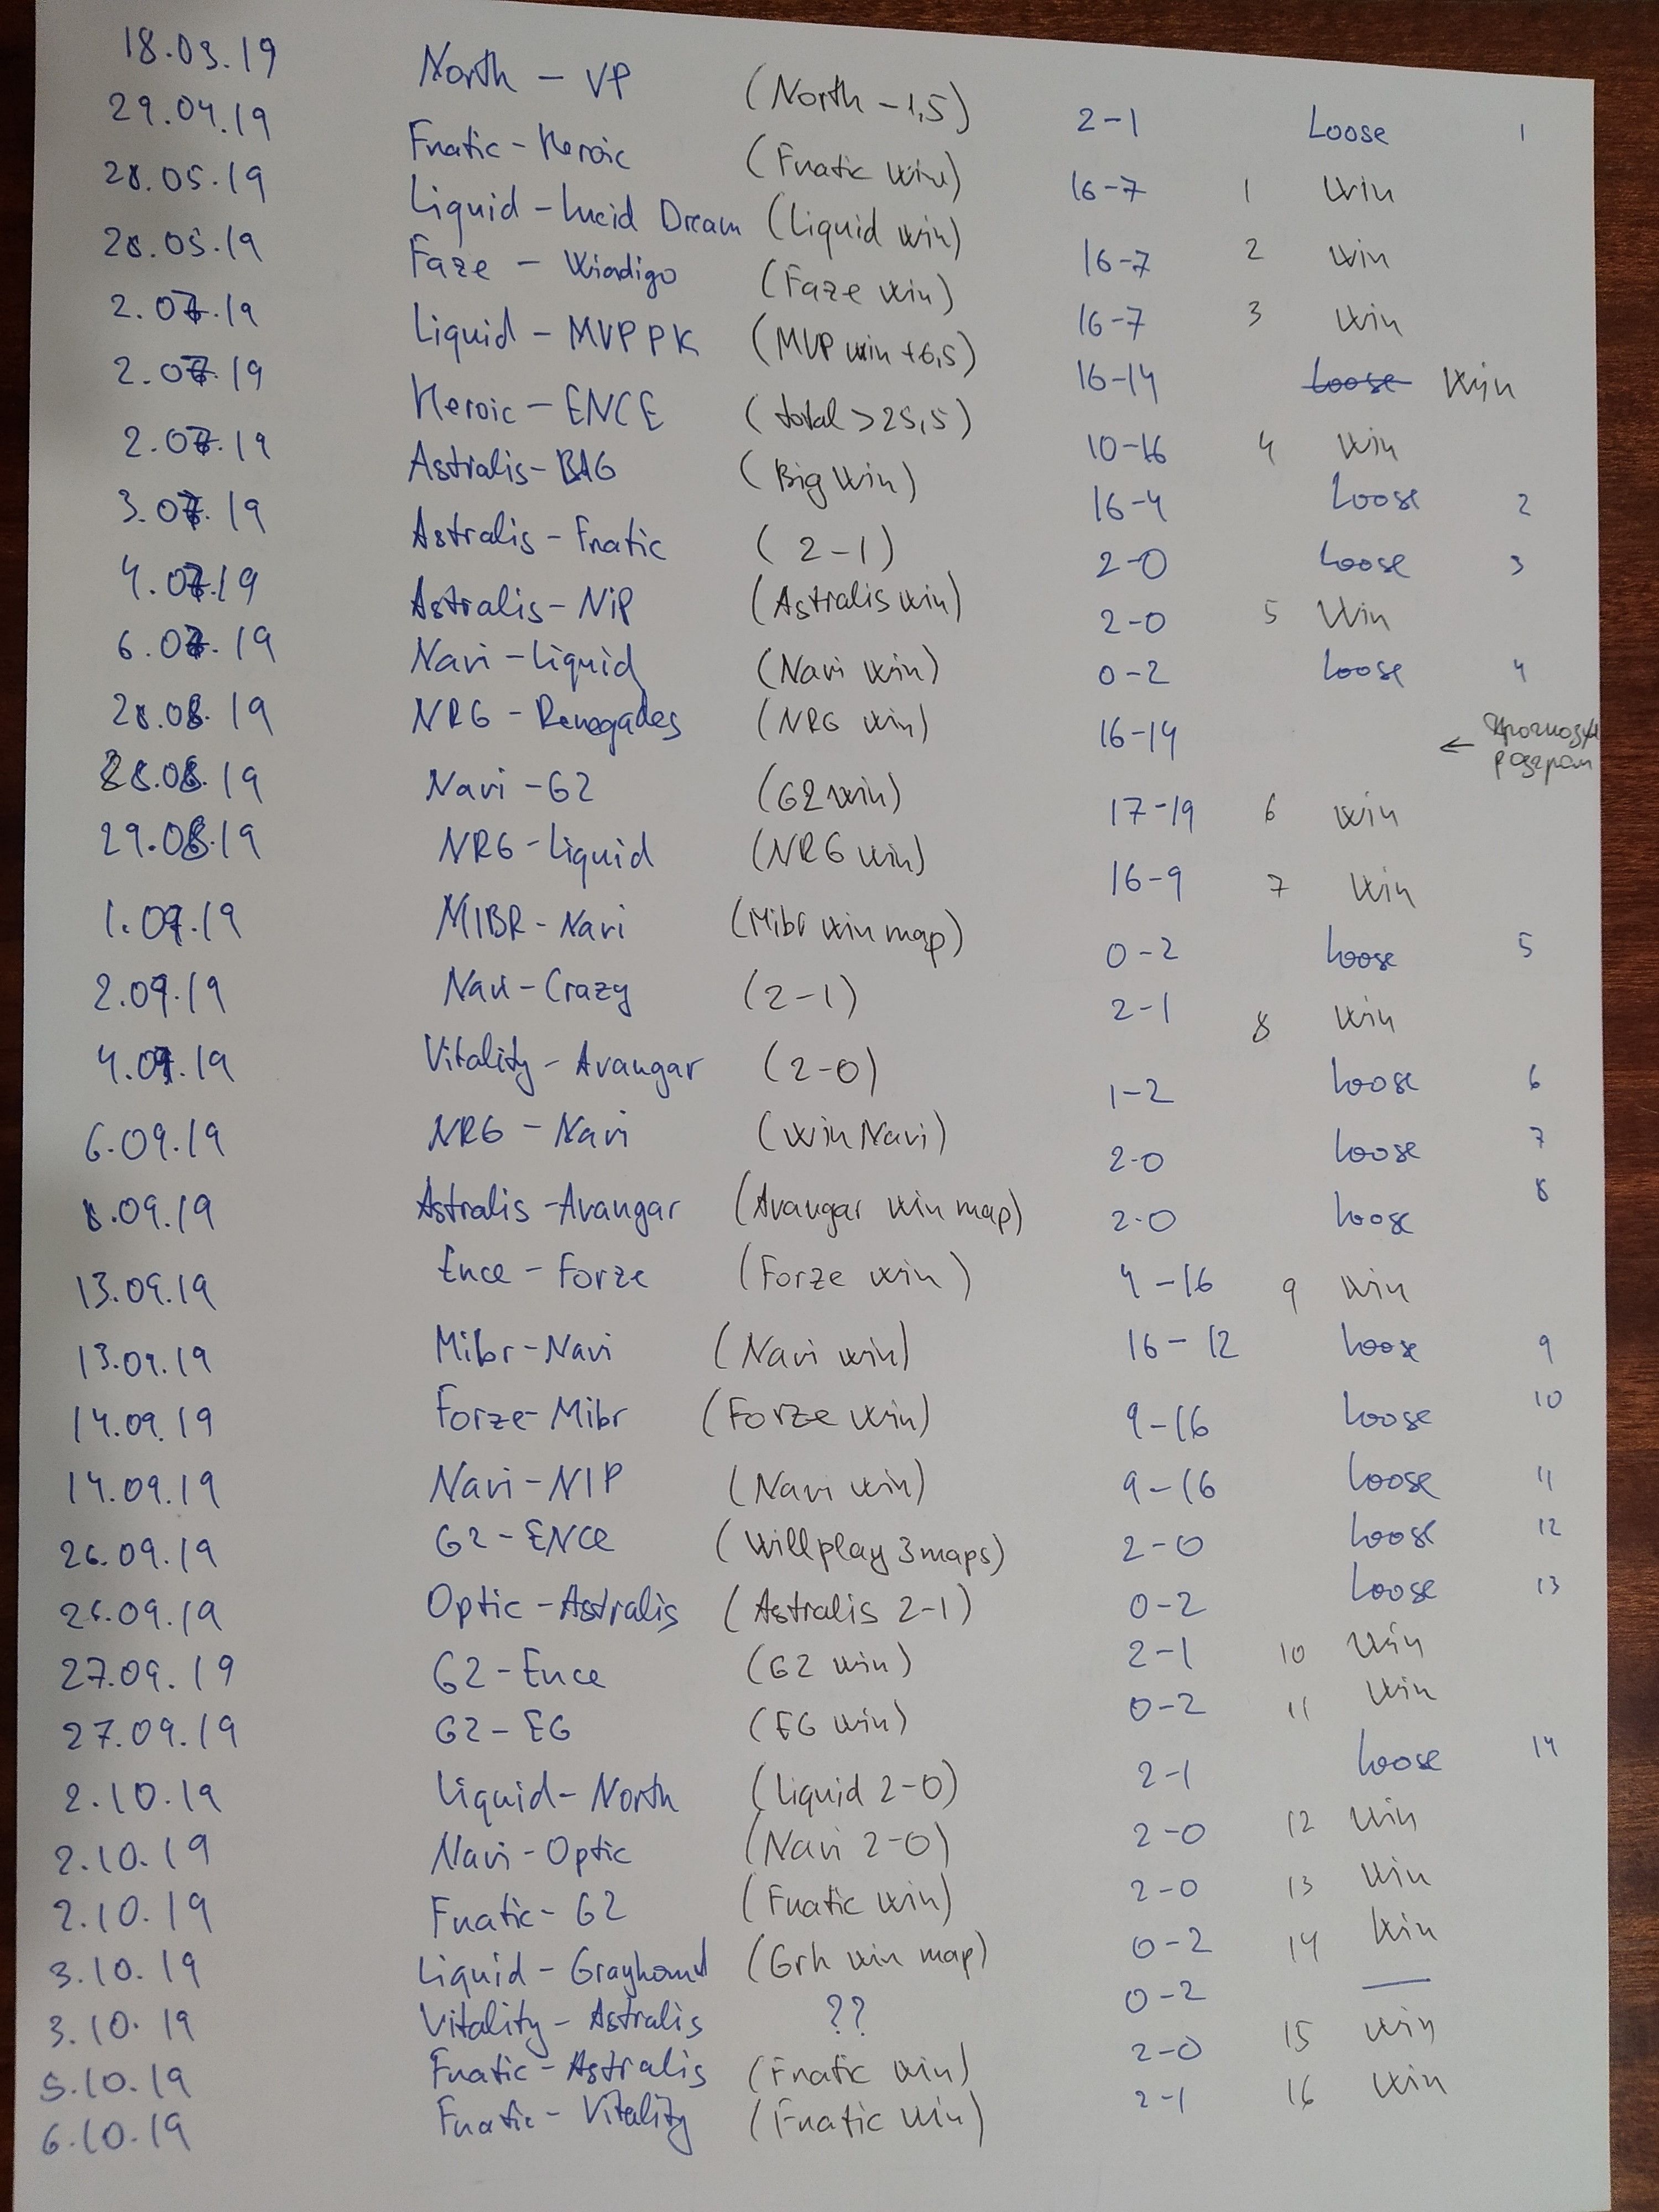 18.03.19 North - VP (North -1,5) 2-1 Loose 1
29.04.19 Fnatic - Heroic (Fnatic win) 16-7 1 Win
28.05.19 Liquid - Lucid Dream (Liquid win) 16-7 2 Win
28.05.19 Faze - Windigo (Faze win) 16-7 3 Win
2.07.19 Liquid - MVP PK (MVP win +6,5) 16-14 Loose Win
2.07.19 Heroic - ENCE (total >25,5) 10-16 4 Win
2.07.19 Astralis - BIG (Big Win) 16-4 Loose 2
3.07.19 Astralis - Fnatic (2-1) 2-0 Loose 3
4.07.19 Astralis - NiP (Astralis win) 2-0 5 Win
6.07.19 Navi - Liquid (Navi win) 0-2 Loose 4
28.08.19 NRG - Renegades (NRG win) 16-14 ←
28.08.19 Navi - G2 (G2 win) 17-19 6 Win
29.08.19 NRG - Liquid (NRG win) 16-9 7 Win
1.09.19 MIBR - Navi (Mibr win map) 0-2 Loose 5
2.09.19 Navi - Crazy (2-1) 2-1 8 Win
4.09.19 Vitality - Avangar (2-0) 1-2 Loose 6
6.09.19 NRG - Navi (Win Navi) 2-0 Loose 7
8.09.19 Astralis - Avangar (Avangar win map) 2-0 Loose 8
13.09.19 Ence - Forze (Forze win) 4-16 9 Win
13.09.19 Mibr - Navi (Navi win) 16-12 Loose 9
14.09.19 Forze - Mibr (Forze win) 9-16 Loose 10
14.09.19 Navi - NIP (Navi win) 9-16 Loose 11
26.09.19 G2 - ENCE (Will play 3 maps) 2-0 Loose 12
26.09.19 Optic - Astralis (Astralis 2-1) 0-2 Loose 13
27.09.19 G2 - Ence (G2 win) 2-1 10 Win
27.09.19 G2 - EG (EG win) 0-2 11 Win
2.10.19 Liquid - North (Liquid 2-0) 2-1 Loose 14
2.10.19 Navi - Optic (Navi 2-0) 2-0 12 Win
2.10.19 Fnatic - G2 (Fnatic win) 2-0 13 Win
3.10.19 Liquid - Grayhound (Grh win map) 0-2 14 Win
3.10.19 Vitality - Astralis ?? 0-2 —
5.10.19 Fnatic - Astralis (Fnatic win) 2-0 15 Win
6.10.19 Fnatic - Vitality (Fnatic win) 2-1 16 Win